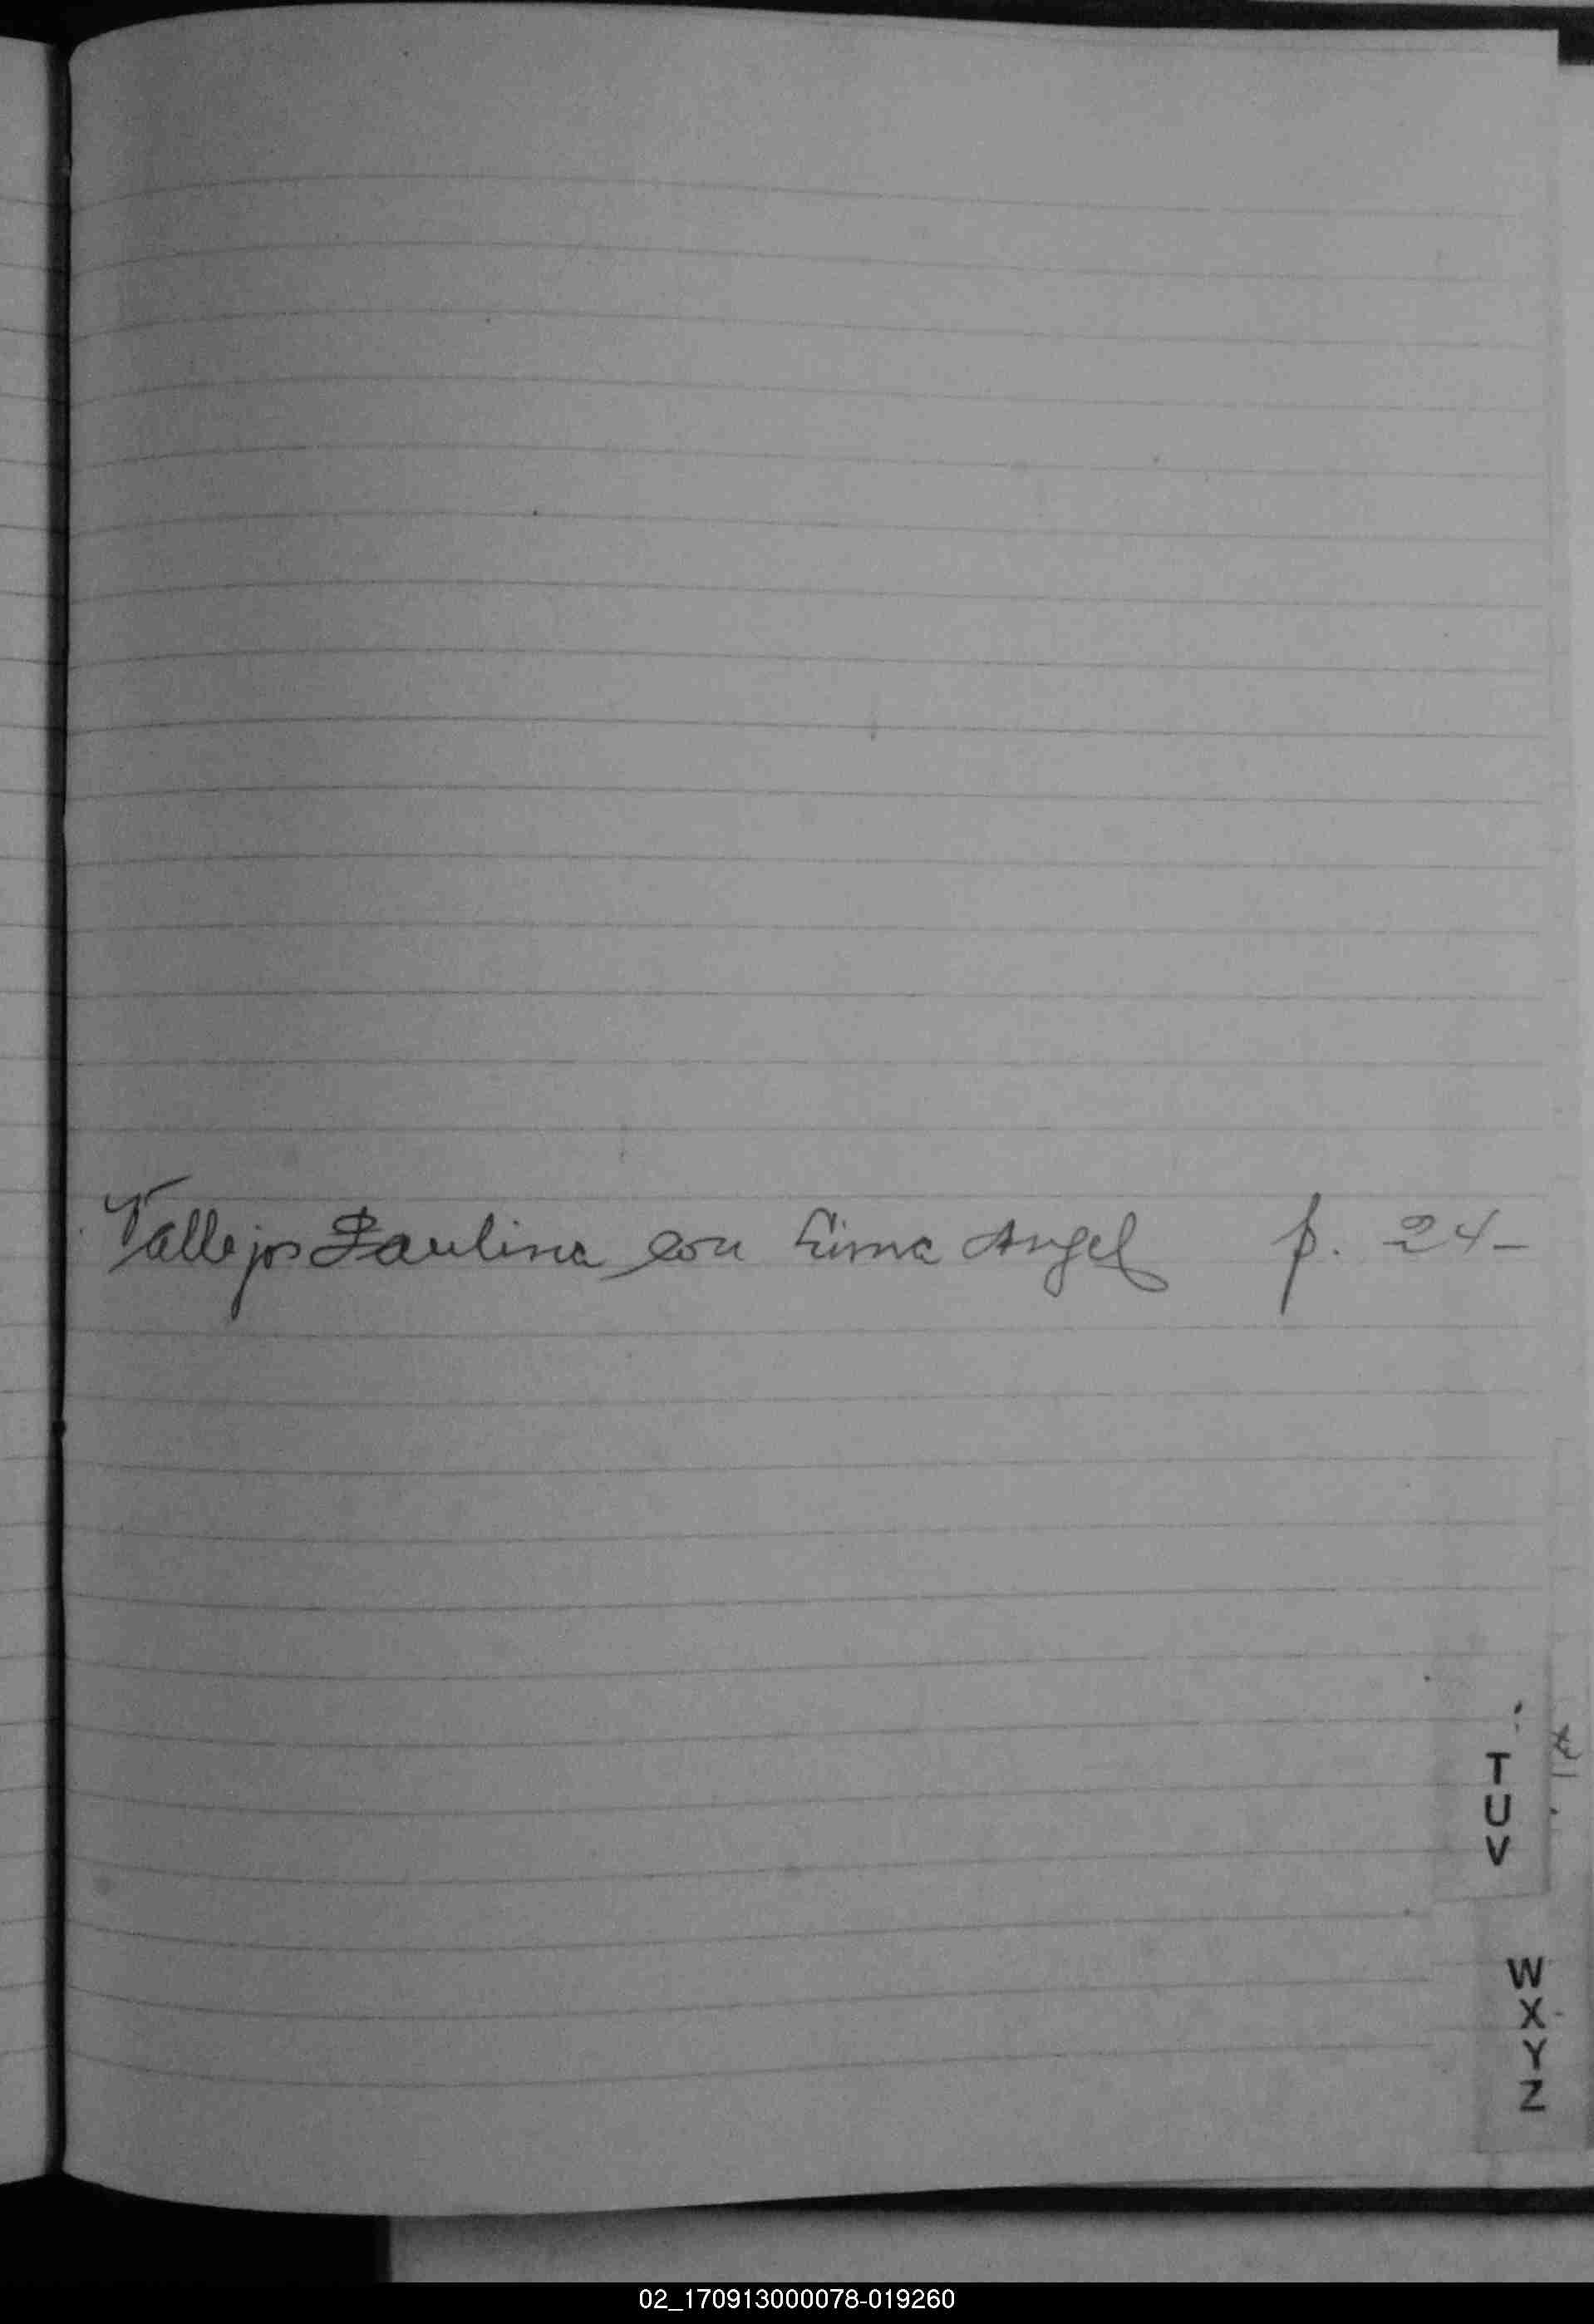 Vallejos Paulina con Lima Angel p. 24-
T
U
V
W
X
Y
Z
02_170913000078-019260